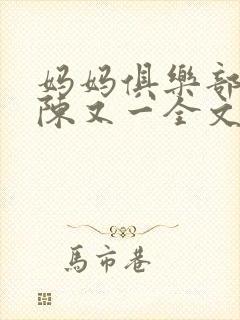 妈妈俱樂部
陳又一全文
馬市巷